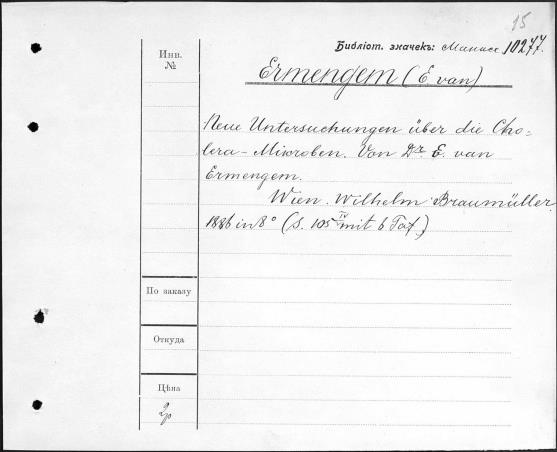 15
Библіот. значекъ: Минасе 10277.
Инв.
№
Ermengem (E. van)
Neue Untersuchungen über die Cho-
lera-Mikroben. Von Dr. E. van
Ermengem.
Wien. Wilhelm Braumüller.
1886 in 8° (S. 105 IV mit 6 Taf.)
По заказу
Откуда
Цѣна
2р